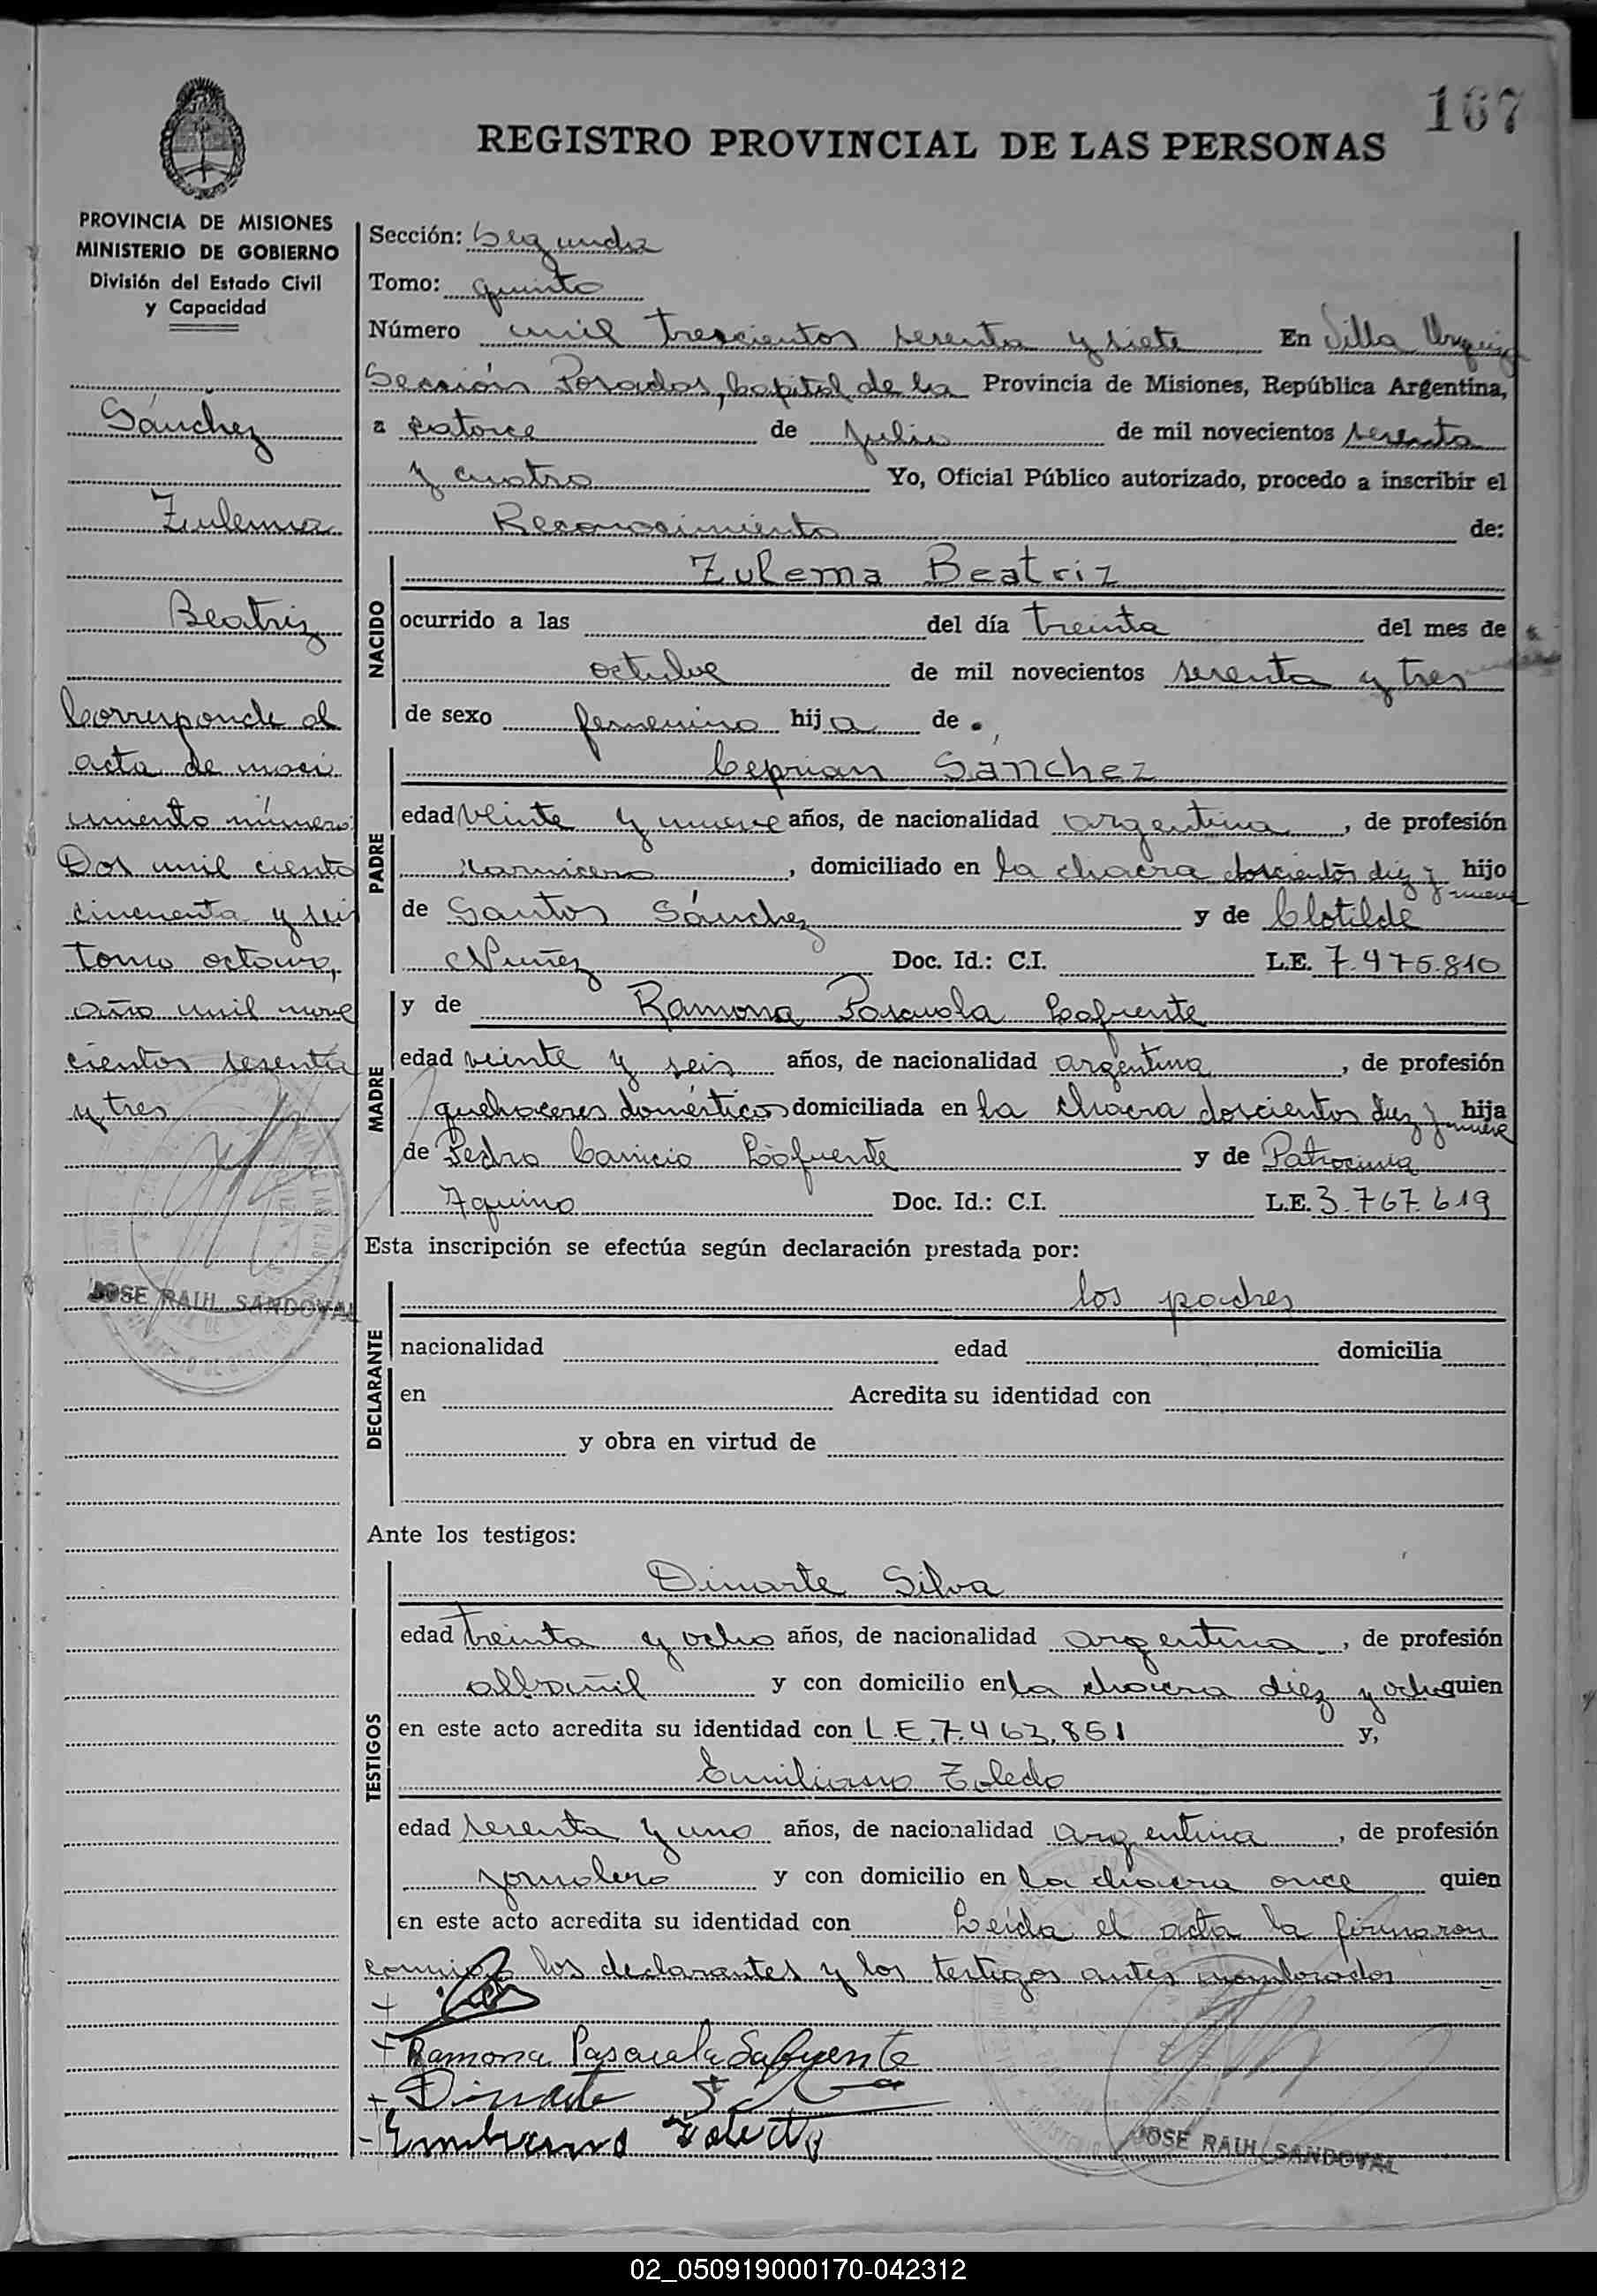 167
REGISTRO PROVINCIAL DE LAS PERSONAS
PROVINCIA DE MISIONES
MINISTERIO DE GOBIERNO
División del Estado Civil
y Capacidad
Sánchez
Zulema
Beatriz
Corresponde al
acta de naci
miento número
Dos mil ciento
cincuenta y seis
tomo octavo,
año mil nove
cientos sesenta
y tres
JOSE RAUL SANDOVAL
Sección: Segunda
Tomo: quinto
Número mil trescientos sesenta y siete En Villa Urquiza
Sección Posadas, Capital de la Provincia de Misiones, República Argentina,
a catorce de julio de mil novecientos sesenta
y cuatro Yo, Oficial Público autorizado, procedo a inscribir el
Reconocimiento de:
NACIDO
Zulema Beatriz
ocurrido a las del día treinta del mes de
octubre de mil novecientos sesenta y tres
de sexo femenino hija de
PADRE
Ceprian Sánchez
edad veinte y nueve años, de nacionalidad argentina, de profesión
carnicero, domiciliado en la chacra doscientos diez y nueve hijo
de Santos Sánchez y de Clotilde
Nuñez Doc. Id.: C.I. L.E. 7.475.810
MADRE
y de Ramona Pascuala Lafuente
edad veinte y seis años, de nacionalidad argentina, de profesión
quehaceres domésticos domiciliada en la chacra doscientos diez y nueve hija
de Pedro Lafuente y de Patrocinia
Aquino Doc. Id.: C.I. L.E. 3.767.619
Esta inscripción se efectúa según declaración prestada por:
DECLARANTE
los padres
nacionalidad edad domicilia
en Acredita su identidad con
y obra en virtud de
Ante los testigos:
TESTIGOS
Dinarte Silva
edad treinta y ocho años, de nacionalidad argentina, de profesión
albañil y con domicilio en la chacra diez y ocho quien
en este acto acredita su identidad con L.E. 7.463.851 y,
Emiliano Toledo
edad sesenta y uno años, de nacionalidad argentina, de profesión
jornalero y con domicilio en la chacra once quien
en este acto acredita su identidad con Leída el acta la firmaron
conmigo los declarantes y los testigos antes nombrados
Ramona Pascuala Lafuente
Dinarte Silva
Emiliano Toledo
JOSE RAUL SANDOVAL
02_050919000170-042312